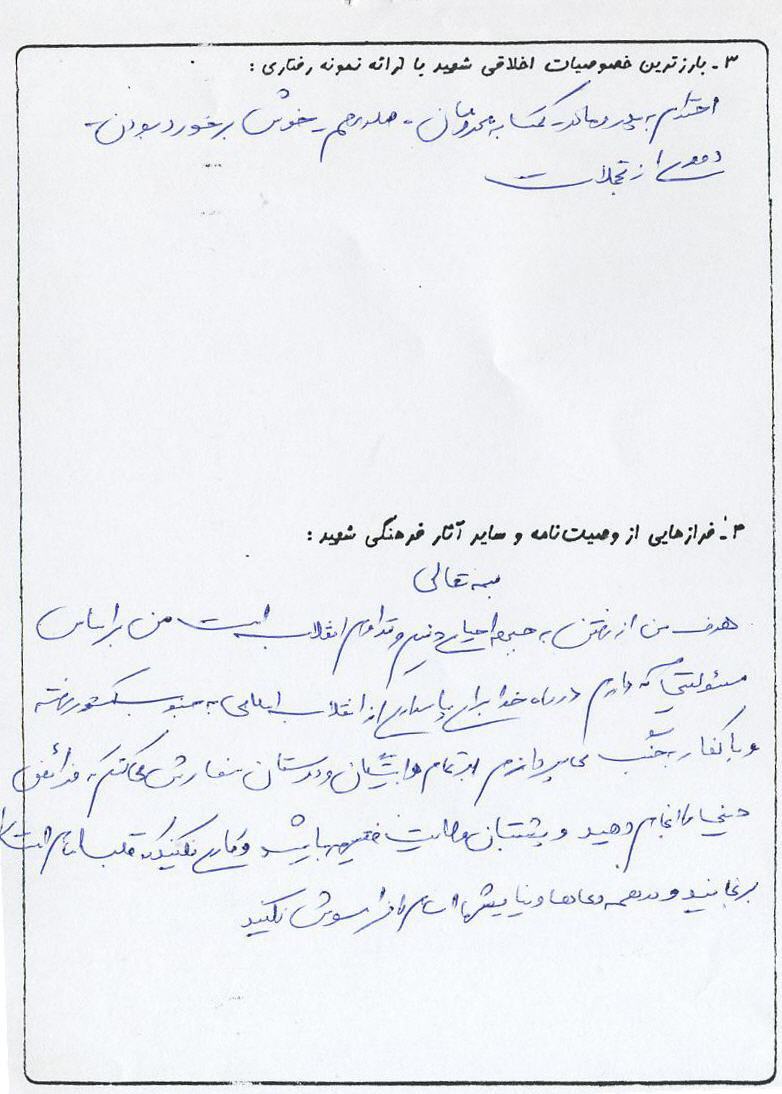 ۳ - بارزترین خصوصیات اخلاقی شهید با ارائه نمونه رفتاری :
احترام به پدر و مادر - کمک به محرومان - صله رحم - خوش برخورد بودن -
دوری از تجملات
۴ - فرازهایی از وصیت نامه و سایر آثار فرهنگی شهید :
بسمه تعالی
هدف من از رفتن به جبهه احیای دین و تداوم انقلاب است من بر اساس
مسئولیتی که دارم در راه خدا برای پاسداری از انقلاب اسلامی به جنوب کشور رفته
و با کفار به جنگ می پردازم از تمام وابستگان و دوستان سفارش می کنم که فرائض
دینی را انجام دهید و پشتیبان ولایت فقیه باشید و کاری نکنید که قلب امام امت را
برنجانید و در همه دعاها و نیایشها امام را فراموش نکنید